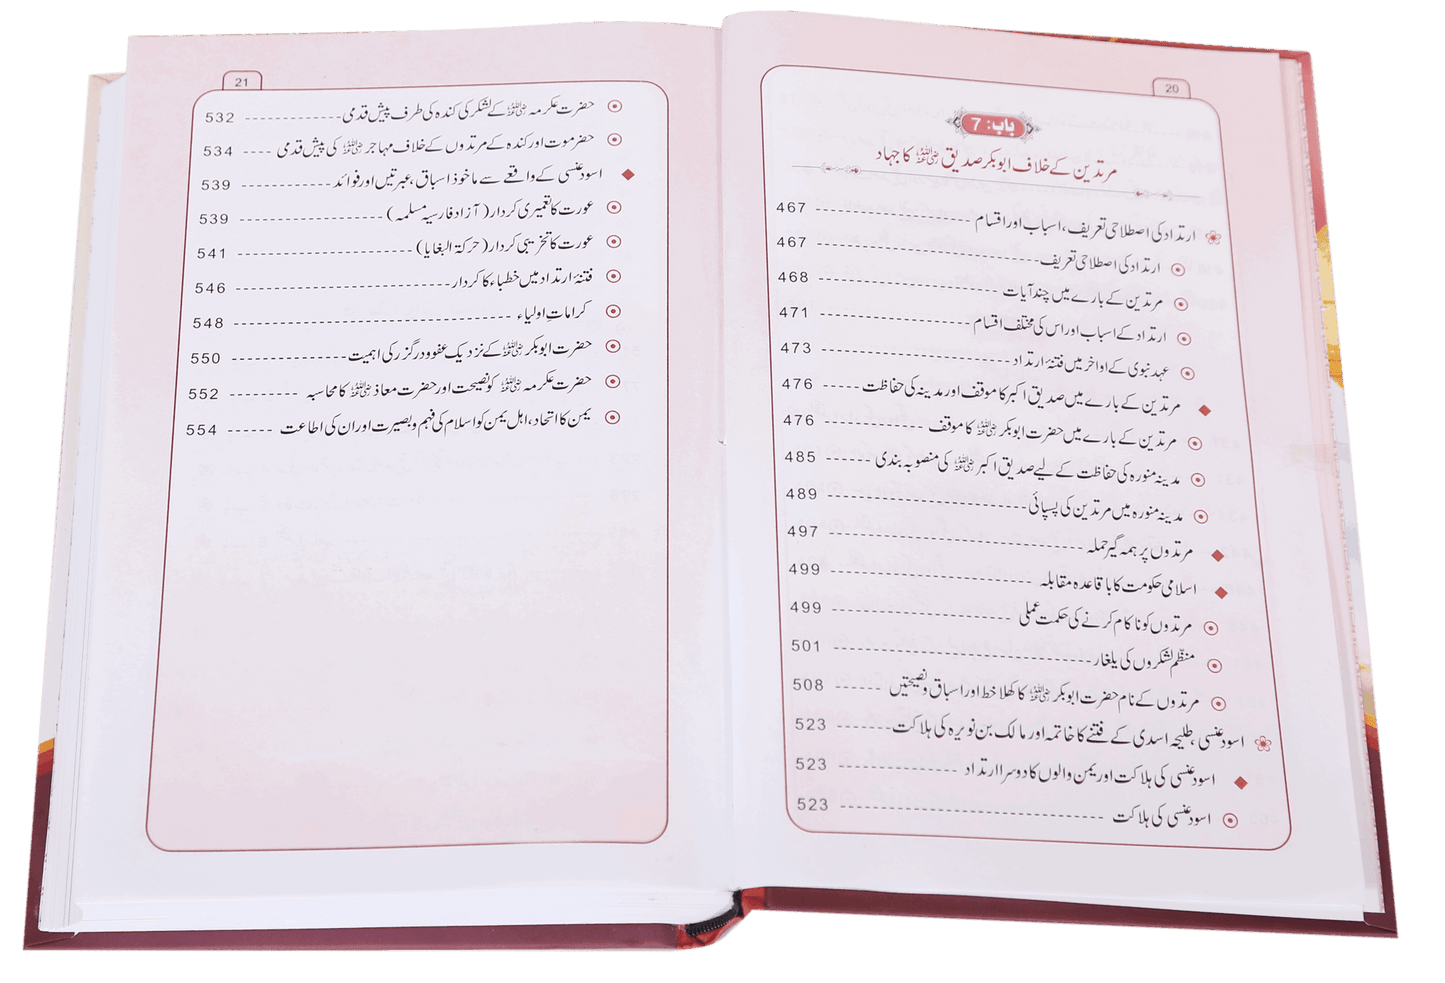 20
باب: 7
مرتدین کے خلاف ابوبکر صدیق ﷜ کا جہاد
ارتداد کی اصطلاحی تعریف، اسباب اور اقسام 467
ارتداد کی اصطلاحی تعریف 467
مرتدین کے بارے میں چند آیات 468
ارتداد کے اسباب اور اس کی مختلف اقسام 471
عہد نبوی کے اواخر میں فتنۂ ارتداد 473
مرتدین کے بارے میں صدیق اکبر کا موقف اور مدینہ کی حفاظت 476
مرتدین کے بارے میں حضرت ابوبکر ﷜ کا موقف 476
مدینہ منورہ کی حفاظت کے لیے صدیق اکبر ﷜ کی منصوبہ بندی 485
مدینہ منورہ میں مرتدین کی پسپائی 489
مرتدوں پر ہمہ گیر حملہ 497
اسلامی حکومت کا باقاعدہ مقابلہ 499
مرتدوں کو ناکام کرنے کی حکمت عملی 499
منظّم لشکروں کی یلغار 501
مرتدوں کے نام حضرت ابوبکر ﷜ کا کھلا خط اور اسباق ونصیحتیں 508
اسود عنسی، طلیحہ اسدی کے فتنے کا خاتمہ اور مالک بن نویرہ کی ہلاکت 523
اسود عنسی کی ہلاکت اور یمن والوں کا دوسرا ارتداد 523
اسود عنسی کی ہلاکت 523
21
حضرت عکرمہ ﷜ کے لشکر کی کندہ کی طرف پیش قدمی 532
حضرموت اور کندہ کے مرتدوں کے خلاف مہاجر ﷜ کی پیش قدمی 534
اسود عنسی کے واقعے سے ماخوذ اسباق، عبرتیں اور فوائد 539
عورت کا تعمیری کردار (آزاد فارسیہ مسلمہ) 539
عورت کا تخریبی کردار (حرکۃ البغایا) 541
فتنۂ ارتداد میں خطباء کا کردار 546
کراماتِ اولیاء 548
حضرت ابوبکر ﷜ کے نزدیک عفو ودرگزر کی اہمیت 550
حضرت عکرمہ ﷜ کو نصیحت اور حضرت معاذ ﷜ کا محاسبہ 552
یمن کا اتحاد، اہل یمن کو اسلام کی فہم وبصیرت اور ان کی اطاعت 554